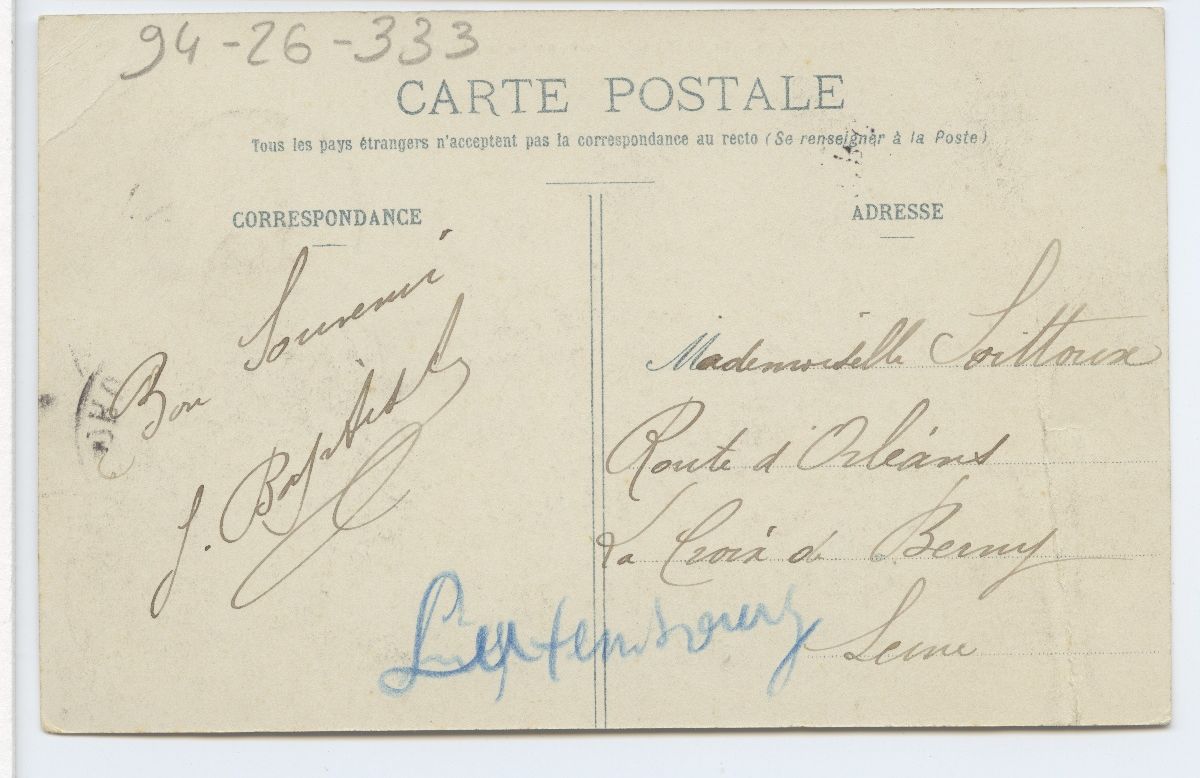 94-26-333
CARTE POSTALE
Tous les pays étrangers n'acceptent pas la correspondance au recto (Se renseigner à la Poste)
CORRESPONDANCE
Bon Souvenir
J. Baptiste
ADRESSE
Mademoiselle Soittoux
Route d'Orléans
La Croix de Berny
Seine